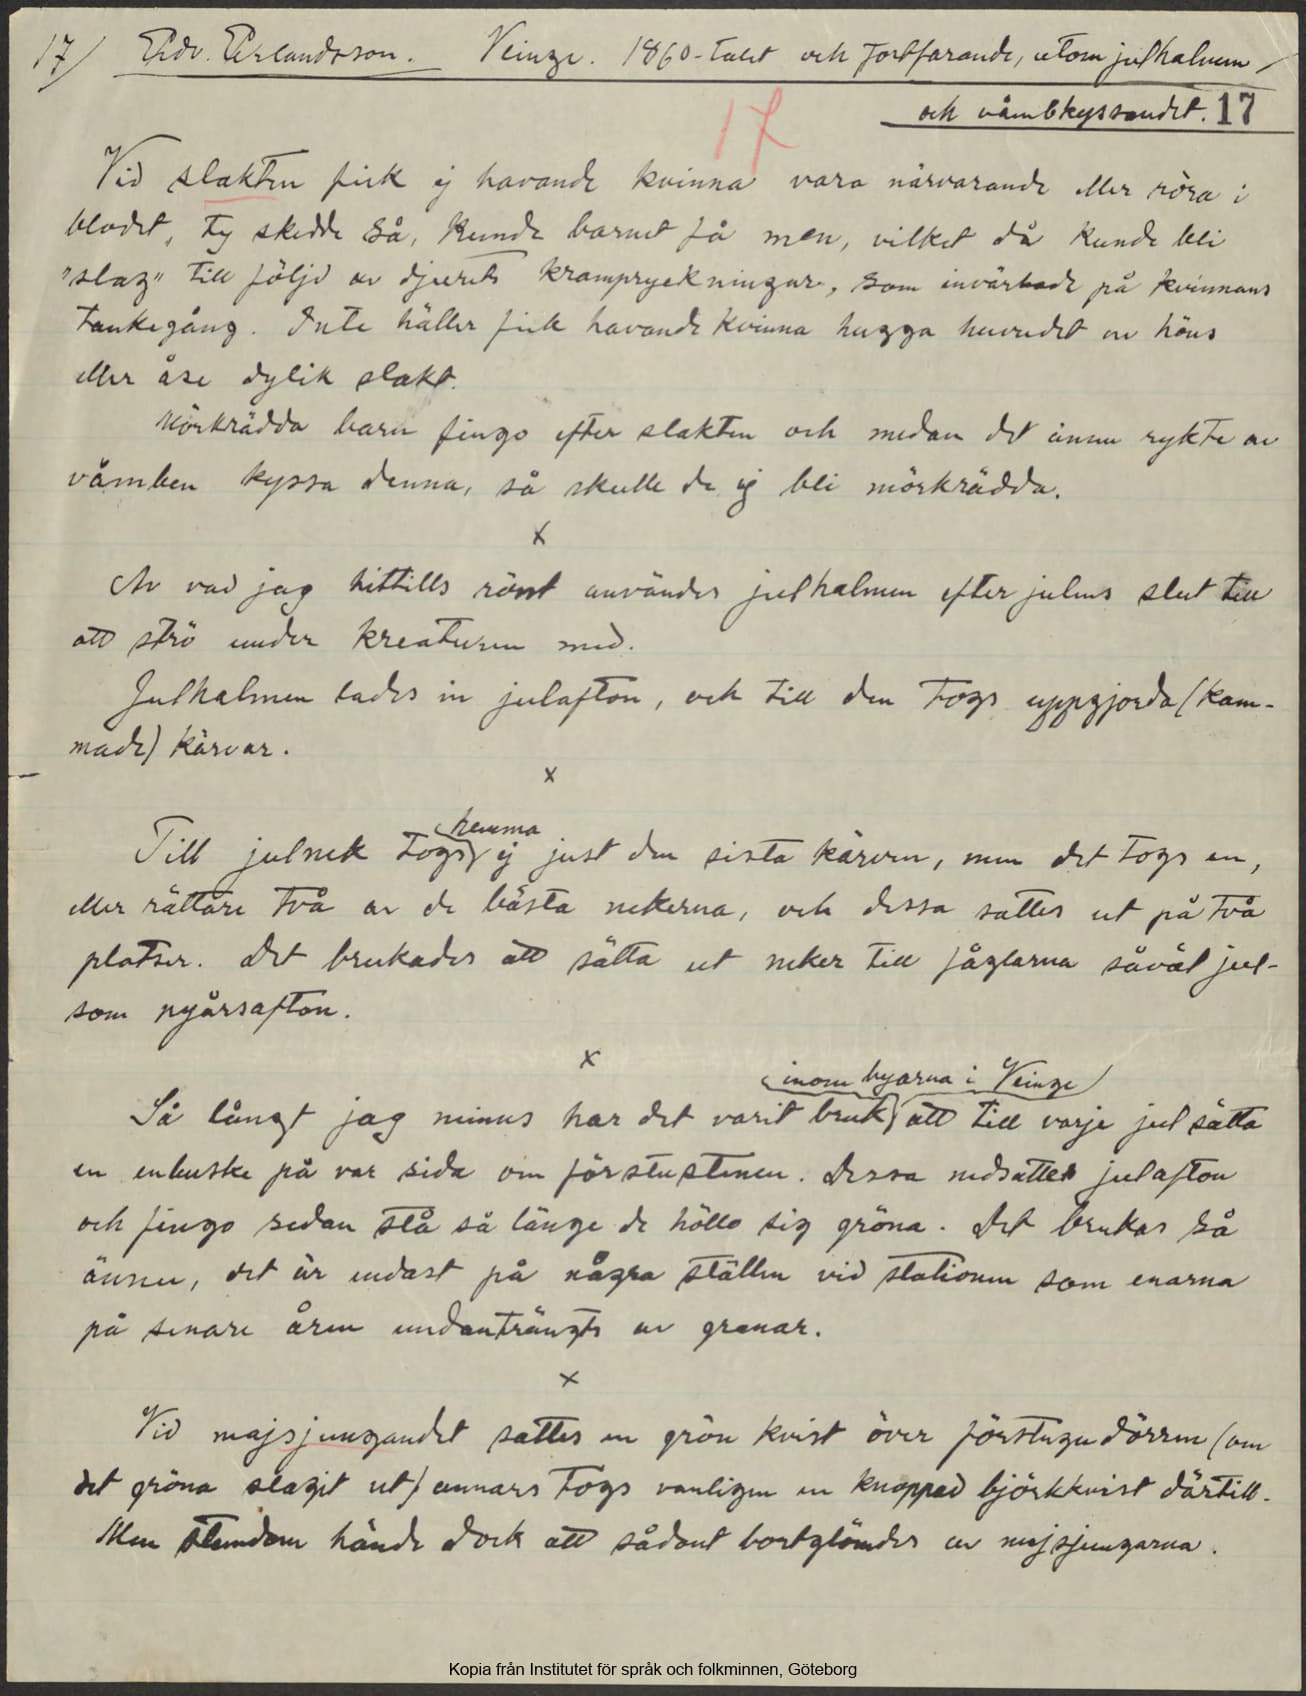 17/ Edv. Erlandsson. Veinge. 1860-talet och fortfarande, utom julhalmen
och våmbkyssandet. 17
17
Vid slakten fick ej havande kvinna vara närvarande eller röra i
blodet, ty skedde så, kunde barnet få men, vilket då kunde bli
"slag" till följd av djurets krampryckningar, som invärkade på kvinnans
tankegång. Inte häller fick havande kvinna hugga huvudet av höns
eller åse dylik slakt.
Mörkrädda barn fingo efter slakten och medan det ännu rykte av
våmben kyssa denna, så skulle de ej bli mörkrädda.
x
Av vad jag hittills rönt användes julhalmen efter julens slut till
att strö under kreaturen med.
Julhalmen lades in julafton, och till den togs uppgjorda (kam-
made) kärvar.
x
hemma
Till julnek togs ej just den sista kärven, men det togs en,
eller rättare två av de bästa nekerna, och dessa sattes ut på två
platser. Det brukades att sätta ut neker till fåglarna såväl jul-
som nyårsafton.
x
inom byarna i Veinge
Så långt jag minns har det varit bruk att till varje jul sätta
en enbuske på var sida om förstustenen. Dessa nedsattes julafton
och fingo sedan stå så länge de höllo sig gröna. Det brukas så
ännu, det är endast på några ställen vid stationen som enarna
på senare åren undanträngts av granar.
x
Vid majsjungandet sattes en grön kvist över förstugudörren (om
det gröna slagit ut) annars togs vanligen en knoppad björkkvist därtill.
Men stundom hände dock att sådant bortglömdes av majsjungarna.
Kopia från Institutet för språk och folkminnen, Göteborg